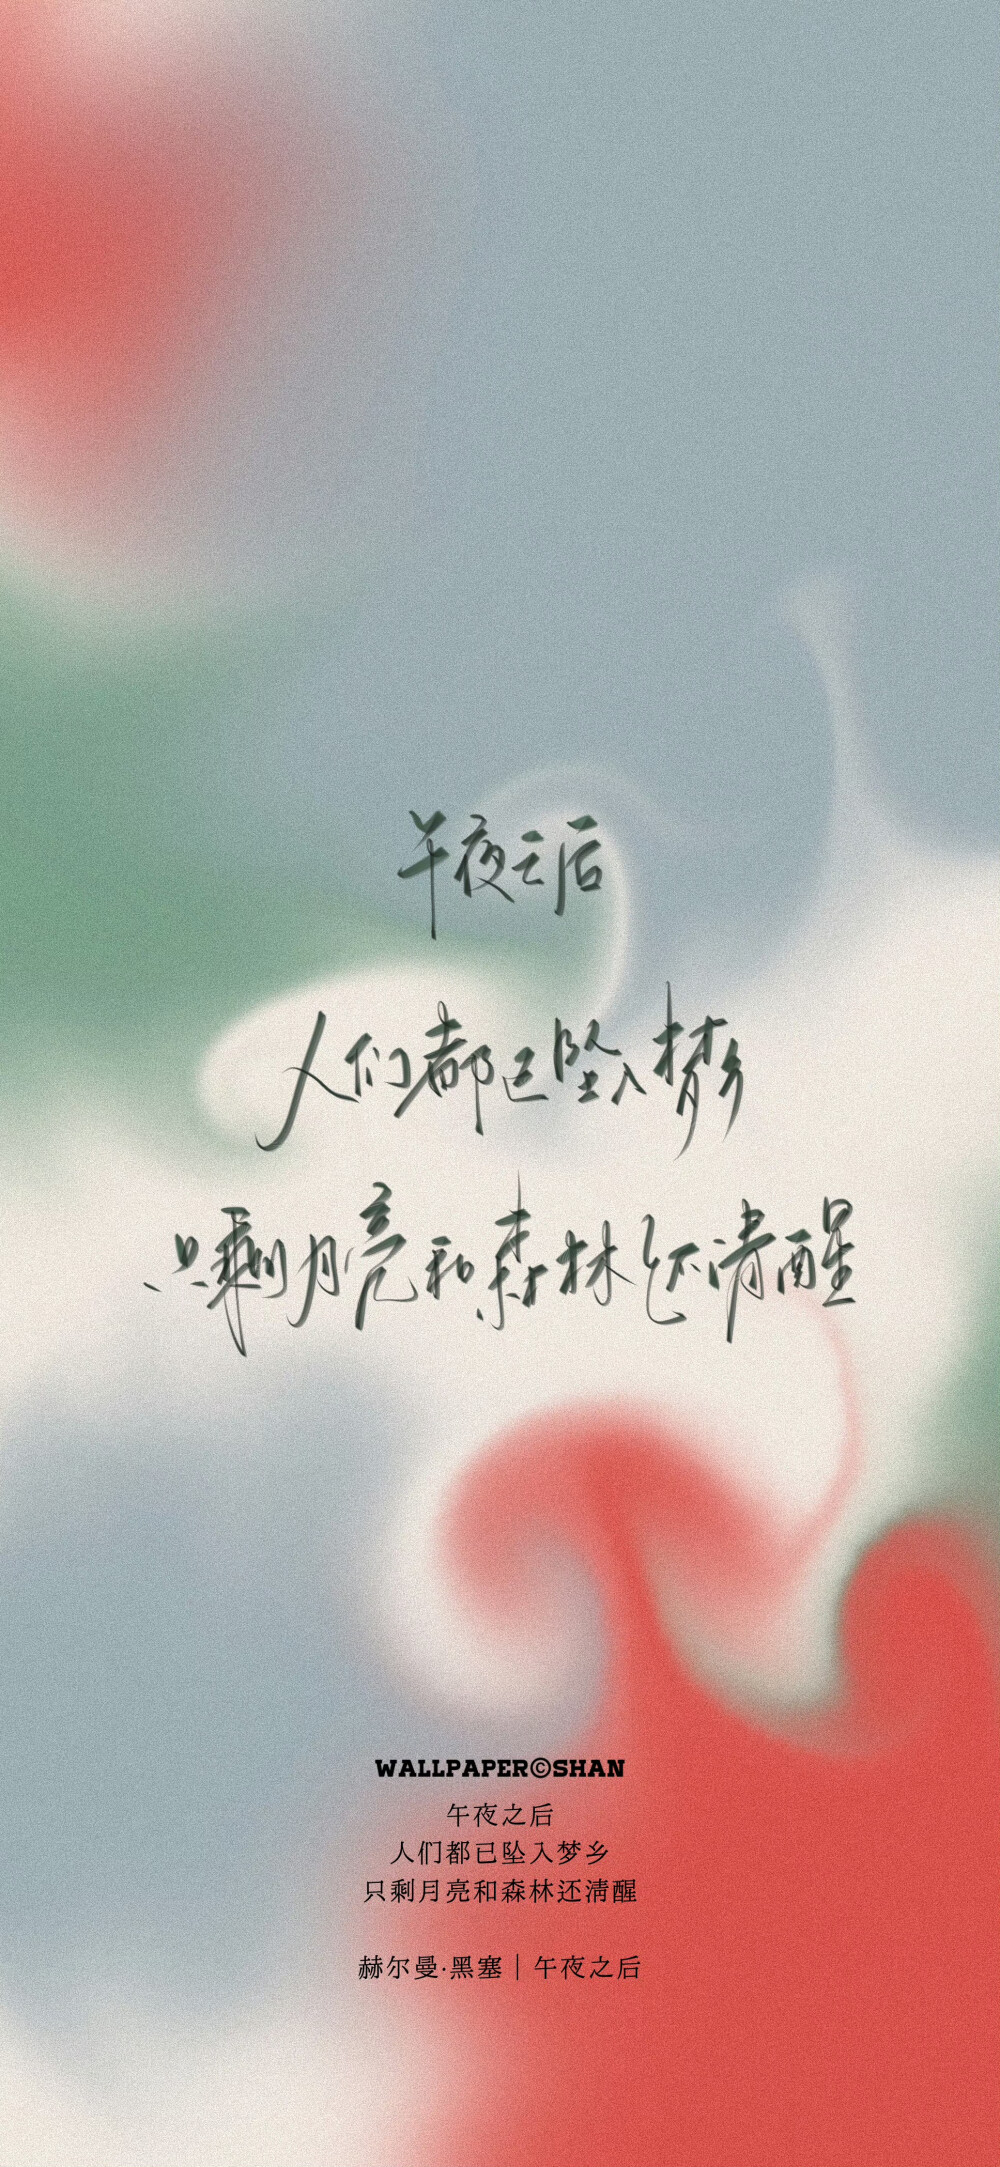 午夜之后
人们都已坠入梦乡
只剩月亮和森林还清醒
WALLPAPER©SHAN
午夜之后
人们都已坠入梦乡
只剩月亮和森林还清醒
赫尔曼·黑塞｜午夜之后